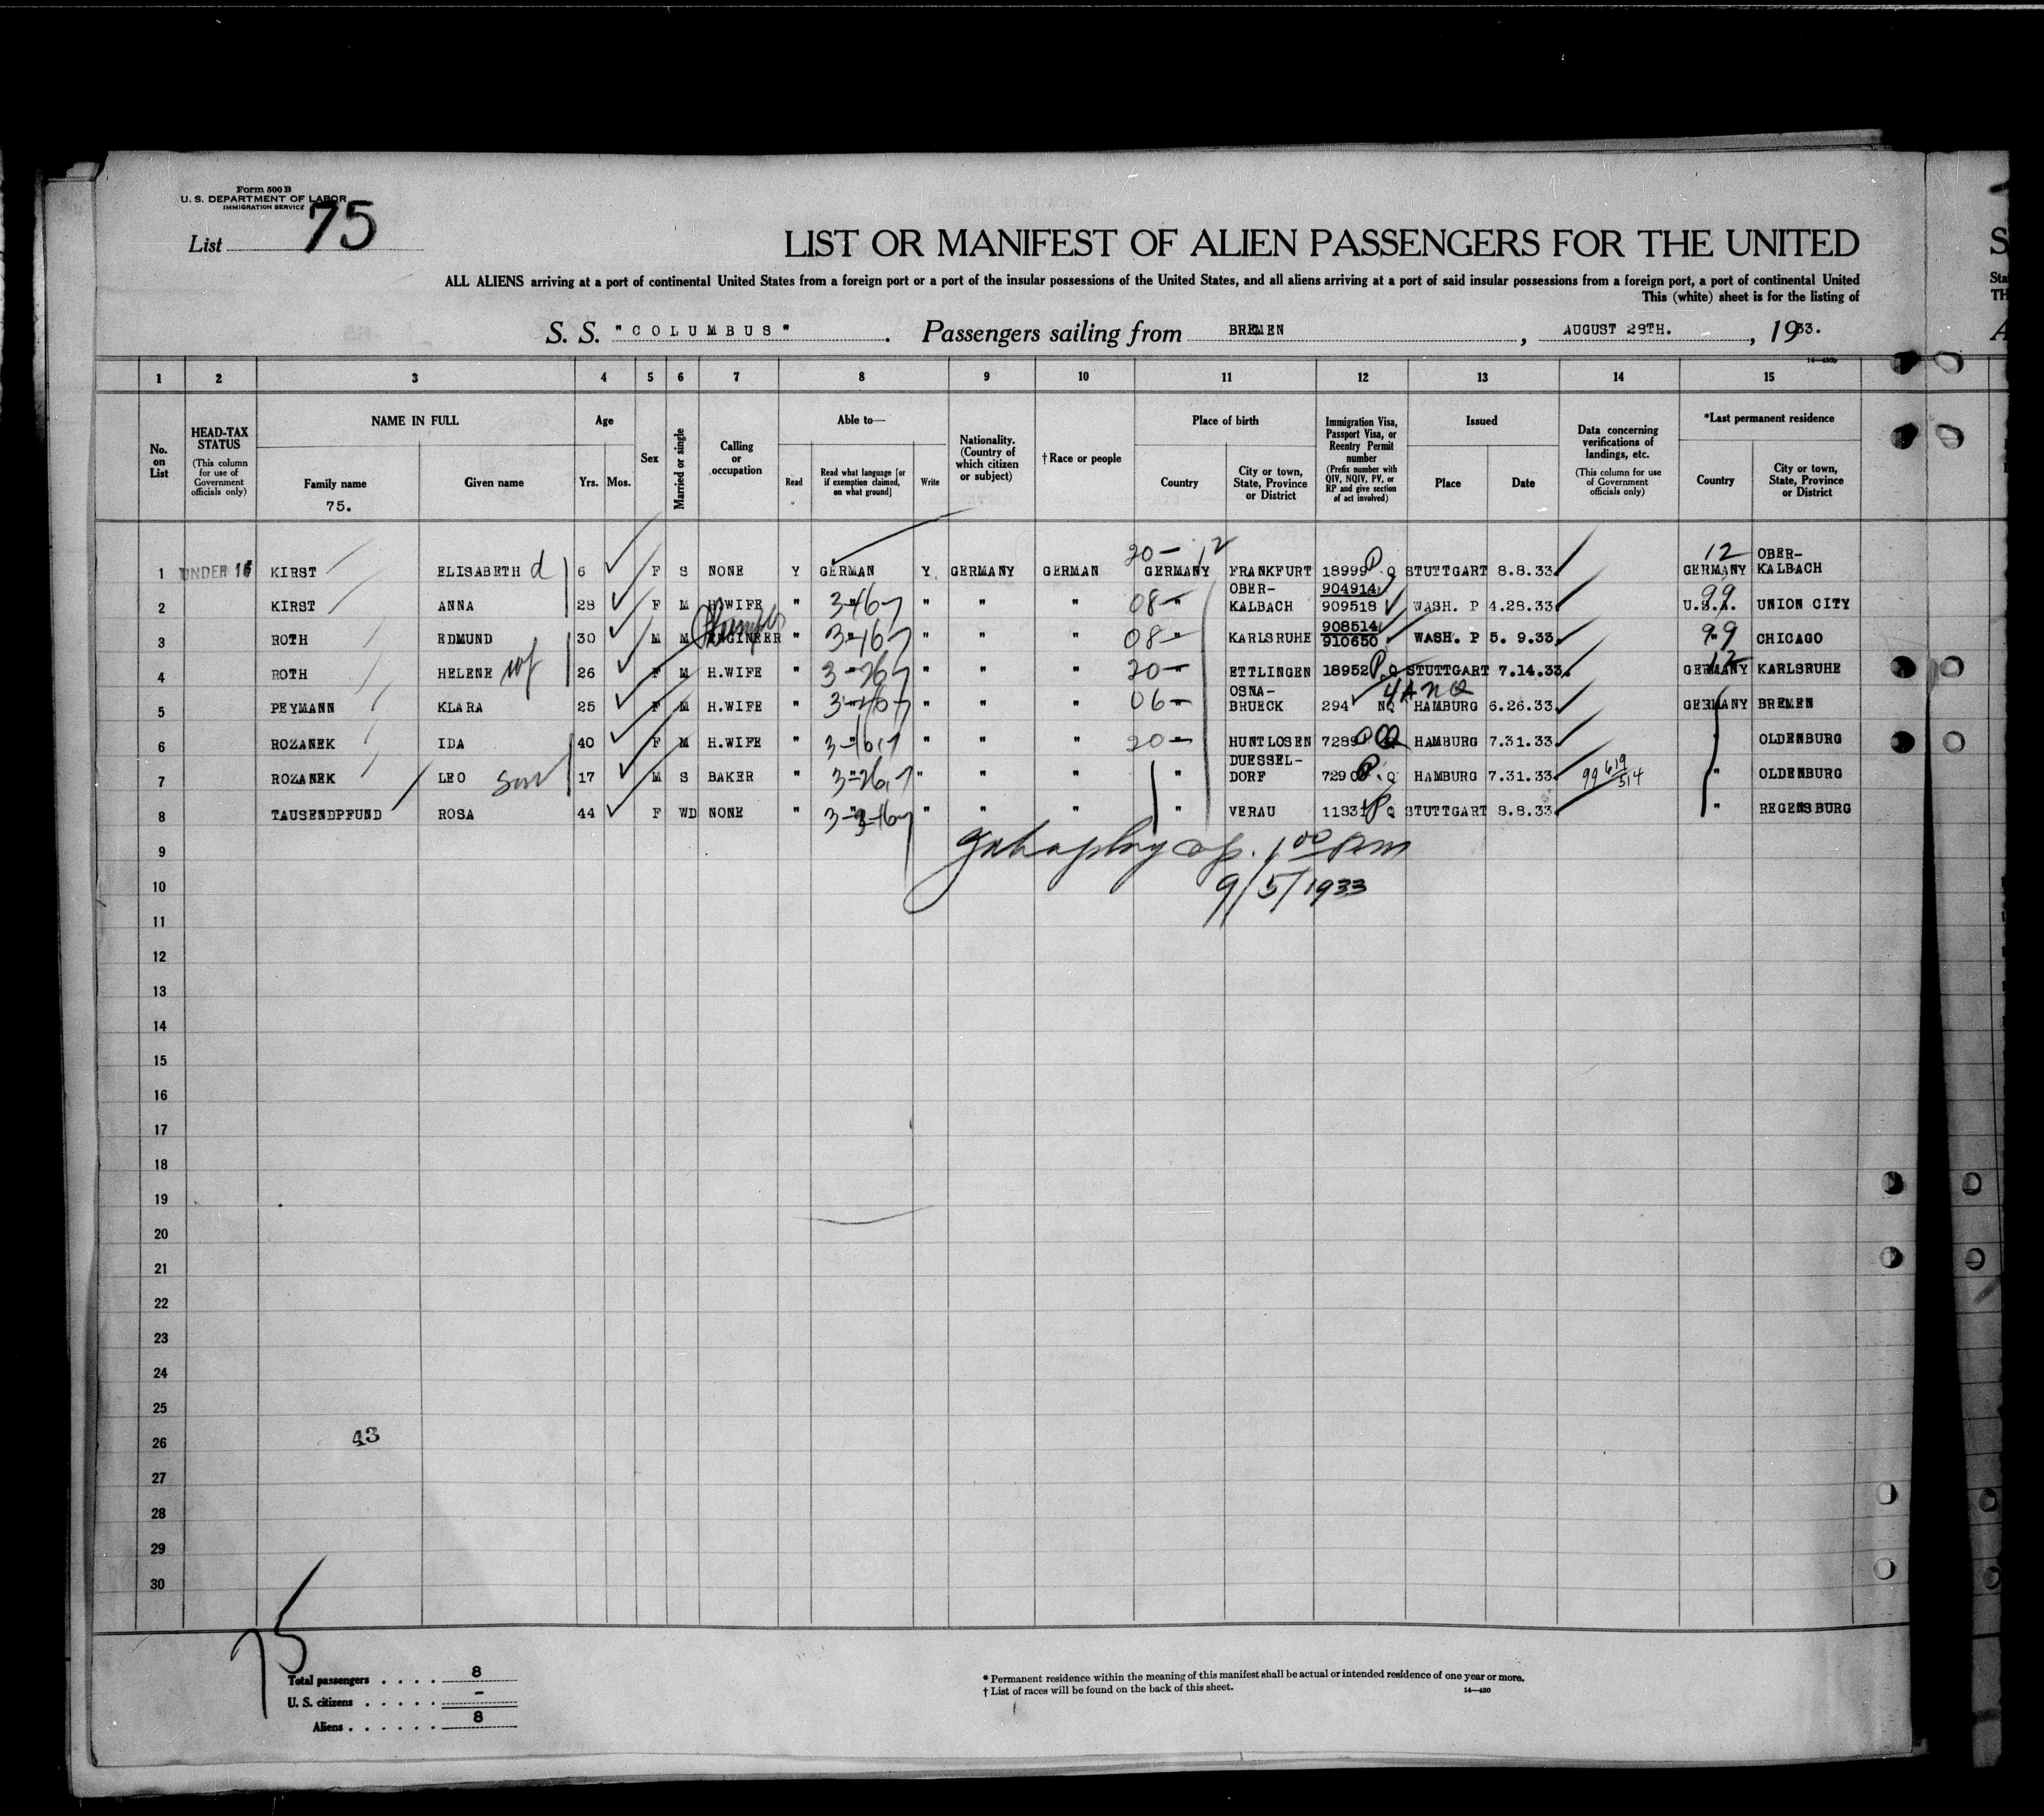 Form 500 B
U. S. DEPARTMENT OF LABOR
IMMIGRATION SERVICE
List 75
LIST OR MANIFEST OF ALIEN PASSENGERS FOR THE UNITED
ALL ALIENS arriving at a port of continental United States from a foreign port or a port of the insular possessions of the United States, and all aliens arriving at a port of said insular possessions from a foreign port, a port of continental United
This (white) sheet is for the listing of
S. S. "COLUMBUS". Passengers sailing from BREMEN, AUGUST 29TH., 1933.
14—430b
1 2 3 4 5 6 7 8 9 10 11 12 13 14 15
No. on List
HEAD-TAX STATUS (This column for use of Government officials only)
NAME IN FULL Family name Given name
75.
Age Yrs. Mos.
Sex
Married or single
Calling or occupation
Able to— Read Read what language [or if exemption claimed, on what ground] Write
Nationality. (Country of which citizen or subject)
† Race or people
Place of birth Country City or town, State, Province or District
Immigration Visa, Passport Visa, or Reentry Permit number (Prefix number with QIV, NQIV, PV, or RP and give section of act involved)
Issued Place Date
Data concerning verifications of landings, etc. (This column for use of Government officials only)
*Last permanent residence Country City or town, State, Province or District
20— 12 12
1 UNDER 16 KIRST ELISABETH d 6 F S NONE Y GERMAN Y GERMANY GERMAN GERMANY FRANKFURT 18999 P Q STUTTGART 8.8.33 GERMANY OBER-KALBACH
2 KIRST ANNA 28 F M H.WIFE " " " " " 08— " OBER-KALBACH 904914 909518 WASH. P 4.28.33 U.S.A. 99 UNION CITY
3 ROTH EDMUND 30 M M ENGINEER " " " " " 08— " KARLSRUHE 908514 910650 WASH. P 5. 9.33 " 99 CHICAGO
4 ROTH HELENE wf 26 F M H.WIFE " " " " " 20— " ETTLINGEN 18952 P Q STUTTGART 7.14.33 GERMANY 12 KARLSRUHE
5 PEYMANN KLARA 25 F M H.WIFE " " " " " 06— " OSNA-BRUECK 294 NQ 4A NQ HAMBURG 6.26.33 GERMANY BREMEN
6 ROZANEK IDA 40 F M H.WIFE " " " " " 20— " HUNTLOSEN 7289 Q HAMBURG 7.31.33 " OLDENBURG
7 ROZANEK LEO son 17 M S BAKER " " " " " " DUESSEL-DORF 7290 P Q HAMBURG 7.31.33 99 619/514 " OLDENBURG
8 TAUSENDPFUND ROSA 44 F WD NONE " " " " " " VERAU 11831 P Q STUTTGART 8.8.33 " REGENSBURG
9
9/5/1933
10
11
12
13
14
15
16
17
18
19
20
21
22
23
24
25
26 43
27
28
29
30
75
Total passengers . . . . 8
U. S. citizens . . . . . –
Aliens . . . . . . 8
* Permanent residence within the meaning of this manifest shall be actual or intended residence of one year or more.
† List of races will be found on the back of this sheet.
14—430